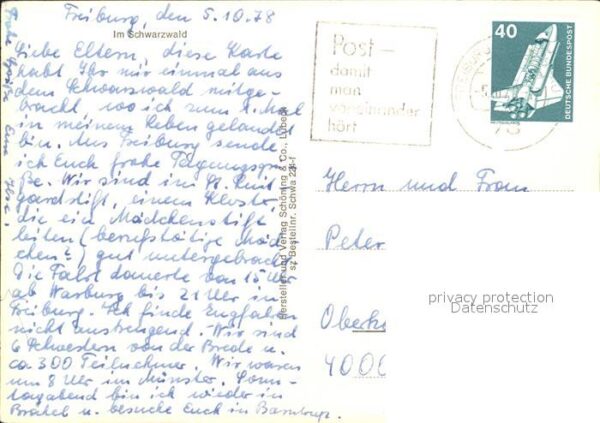 Freiburg, den 5.10.78
Im Schwarzwald
Liebe Eltern, diese Karte
habt Ihr mir einmal aus
dem Schwarzwald mitge-
bracht, wo ich zum 1. Mal
in meinem Leben gelandet
bin. Aus Freiburg sende
ich Euch frohe Tagungsgrü-
ße. Wir sind im St. Luit-
gardstift, einem Kloster
die ein Mädchenstift
leiten (berufstätige Mäd-
chen?) gut untergebracht
Die Fahrt dauerte von 15 Uhr
ab Warburg bis 21 Uhr in
Freiburg. Ich finde Zugfahren
nicht anstrengend. Wir sind
6 Schwestern von der Brede u.
ca 300 Teilnehmer. Wir waren
um 8 Uhr im Münster. Sonn-
tagabend bin ich wieder in
Brakel u. besuche Euch in
Frohe Grüße Eure
Hersteller und Verlag Schöning & Co., Lübeck
Bestellnr. Schwa
Post –
damit
man
voneinander
hört
40
DEUTSCHE BUNDESPOST
Herrn und Frau
Peter
privacy protection
Datenschutz